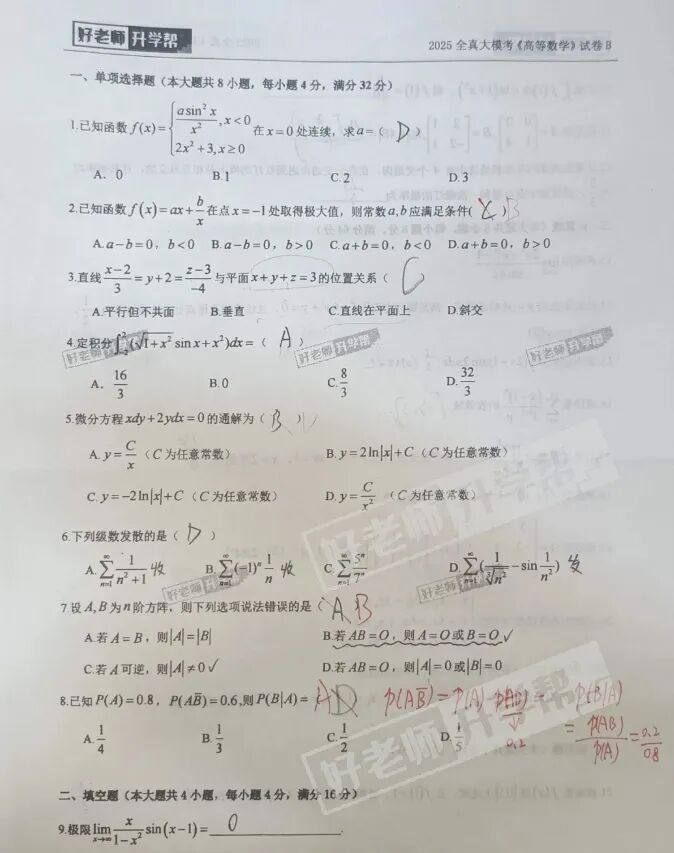 好老师升学帮
2025全真大模考《高等数学》试卷B
一、单项选择题（本大题共8小题，每小题4分，满分32分）
1.已知函数 f(x)={ a sin²x/x², x<0; 2x²+3, x≥0 在x=0处连续，求a=（ D ）
A. 0 B.1 C.2 D.3
2.已知函数 f(x)=ax+b/x 在点x=-1处取得极大值，则常数a,b应满足条件( B
A.a-b=0，b<0 B.a-b=0，b>0 C.a+b=0，b<0 D.a+b=0，b>0
3.直线 (x-2)/3=y+2=(z-3)/-4 与平面x+y+z=3的位置关系（ C ）
A.平行但不共面 B.垂直 C.直线在平面上 D.斜交
4.定积分∫₋₂²(√(1+x²) sin x+x²)dx=（ A ）
A. 16/3 B.0 C. 8/3 D. 32/3
5.微分方程xdy+2ydx=0的通解为（ B D ）
A. y=C/x（C为任意常数） B. y=2ln|x|+C（C为任意常数）
C. y=-2ln|x|+C（C为任意常数） D. y=C/x²（C为任意常数）
6.下列级数发散的是（ D ）
A. ∑(n=1→∞) 1/(n²+1) 收 B. ∑(n=1→∞)(-1)ⁿ 1/n 收 C ∑(n=1→∞) 5ⁿ/7ⁿ D. ∑(n=1→∞)(1/∛n² - sin 1/n²) 发
7.设A,B为n阶方阵，则下列选项说法错误的是（ A B
A.若A=B，则|A|=|B| B.若AB=O，则A=O或B=O✓
C.若A可逆，则|A|≠0✓ D.若AB=O，则|A|=0或|B|=0
8.已知P(A)=0.8，P(AB̅)=0.6,则P(B|A)=（ A D P(AB̅)=P(A)-P(AB) 0.2 P(B|A)
=P(AB)/P(A)=0.2/0.8
A. 1/4 B. 1/3 C. 1/2 D. 1/5
二、填空题（本大题共4小题，每小题4分，满分16分）
9.极限lim(x→∞) x/(1-x²) sin(x-1)= 0 .
好老师升学帮
好老师升学帮
好老师升学帮
好老师升学帮
好老师升学帮